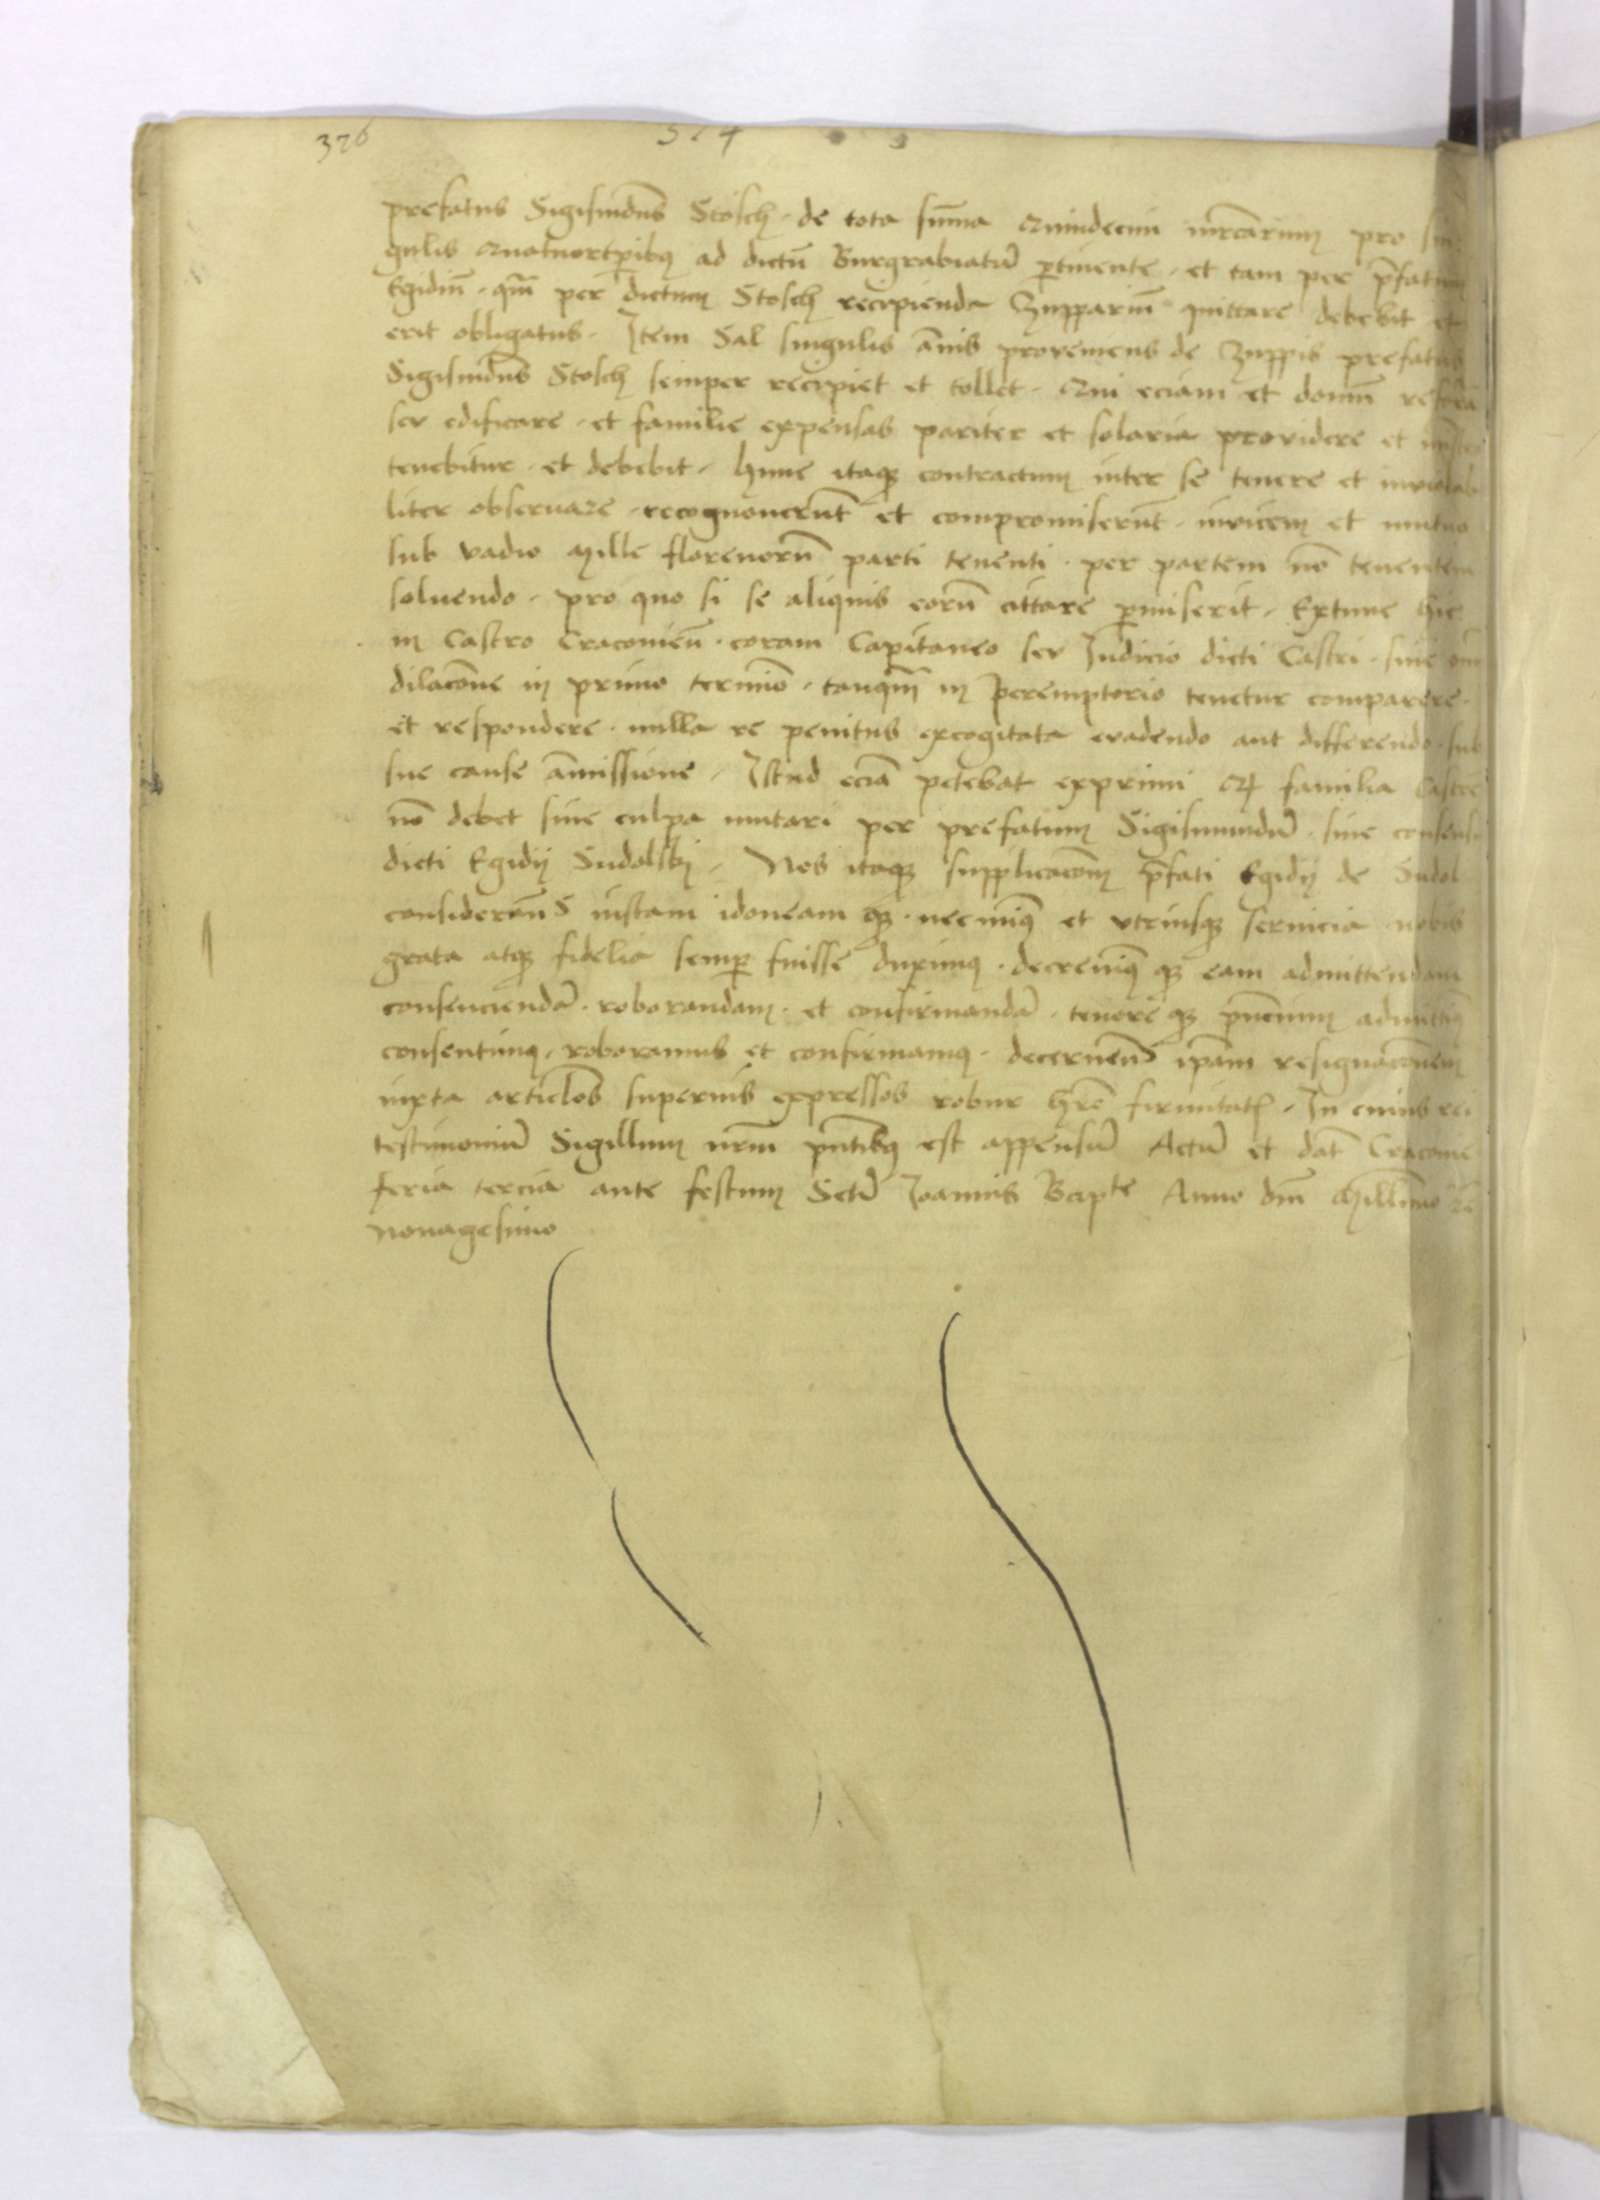 376
prefatus Sigismūdus Stosch · de tota sūma Quindecim mrcārum pro sin
gulis Quatuortp̄ibus ad dictū Burgrabiatū p̄tinente · et tam per p̄fatum
Egidiū · qm̄ per dictum Stosch recipienda Zuppariū quittare debebit et
erit obligatus · Item Sal singulis ānis proveniens de Zuppis prefatus
Sigismūdus Stosch semper recipiet et tollet · Qui eciam et domū
seu edificare · et familie expensas pariter et solaria providere et
tenebitur · et debebit · hunc itaque contractum inter se tenere et inviolabi
liter observare · recognoverūt et compromiserūt · invicem et mutuo
sub vadio Mille florenorū parti tenenti · per partem nō tenentem
solvendo · pro quo si se aliquis eorū cittare p̄miserit · Extunc hic
in Castro Cracovieñ · coram Capitaneo seu Iudicio dicti Castri · sine om̄i
dilacōne in primo termīo · tanqm̄ in peremptorio tenetur comparere ·
et respondere · nulla re penitus excogitata evadendo aut differendo · sub
sue cause āmissione · Istud eciā petebat exprimi Q familia Castren̄
nō debet sine culpa mutari per prefatum Sigismundū · sine consensu
dicti Egidij Sudolskj · Nos itaque supplicacōm p̄fati Egidij de Sudol
considerañs iustam idoneam que · necminus et utriusque servicia nobis
grata atque fidelia semp̄ fuisse duximus · decrevimus que eam admittendam
consenciendā · roborandam · et confirmandā · tenore que p̄ncium admittimus
consentimus · roboramus et confirmamus · decerneñ ip̄am resignacōnem
iuxta articlos superius expressos robur hr̄e firmitatis · In cuius rei
testimoniū Sigillum nrm̄ pn̄tibus est appensū Actū et dat̄ Cracovie
feria tercia ante festum Scti Ioannis Bapte Anno dn̄i Millmo
nonagesimo